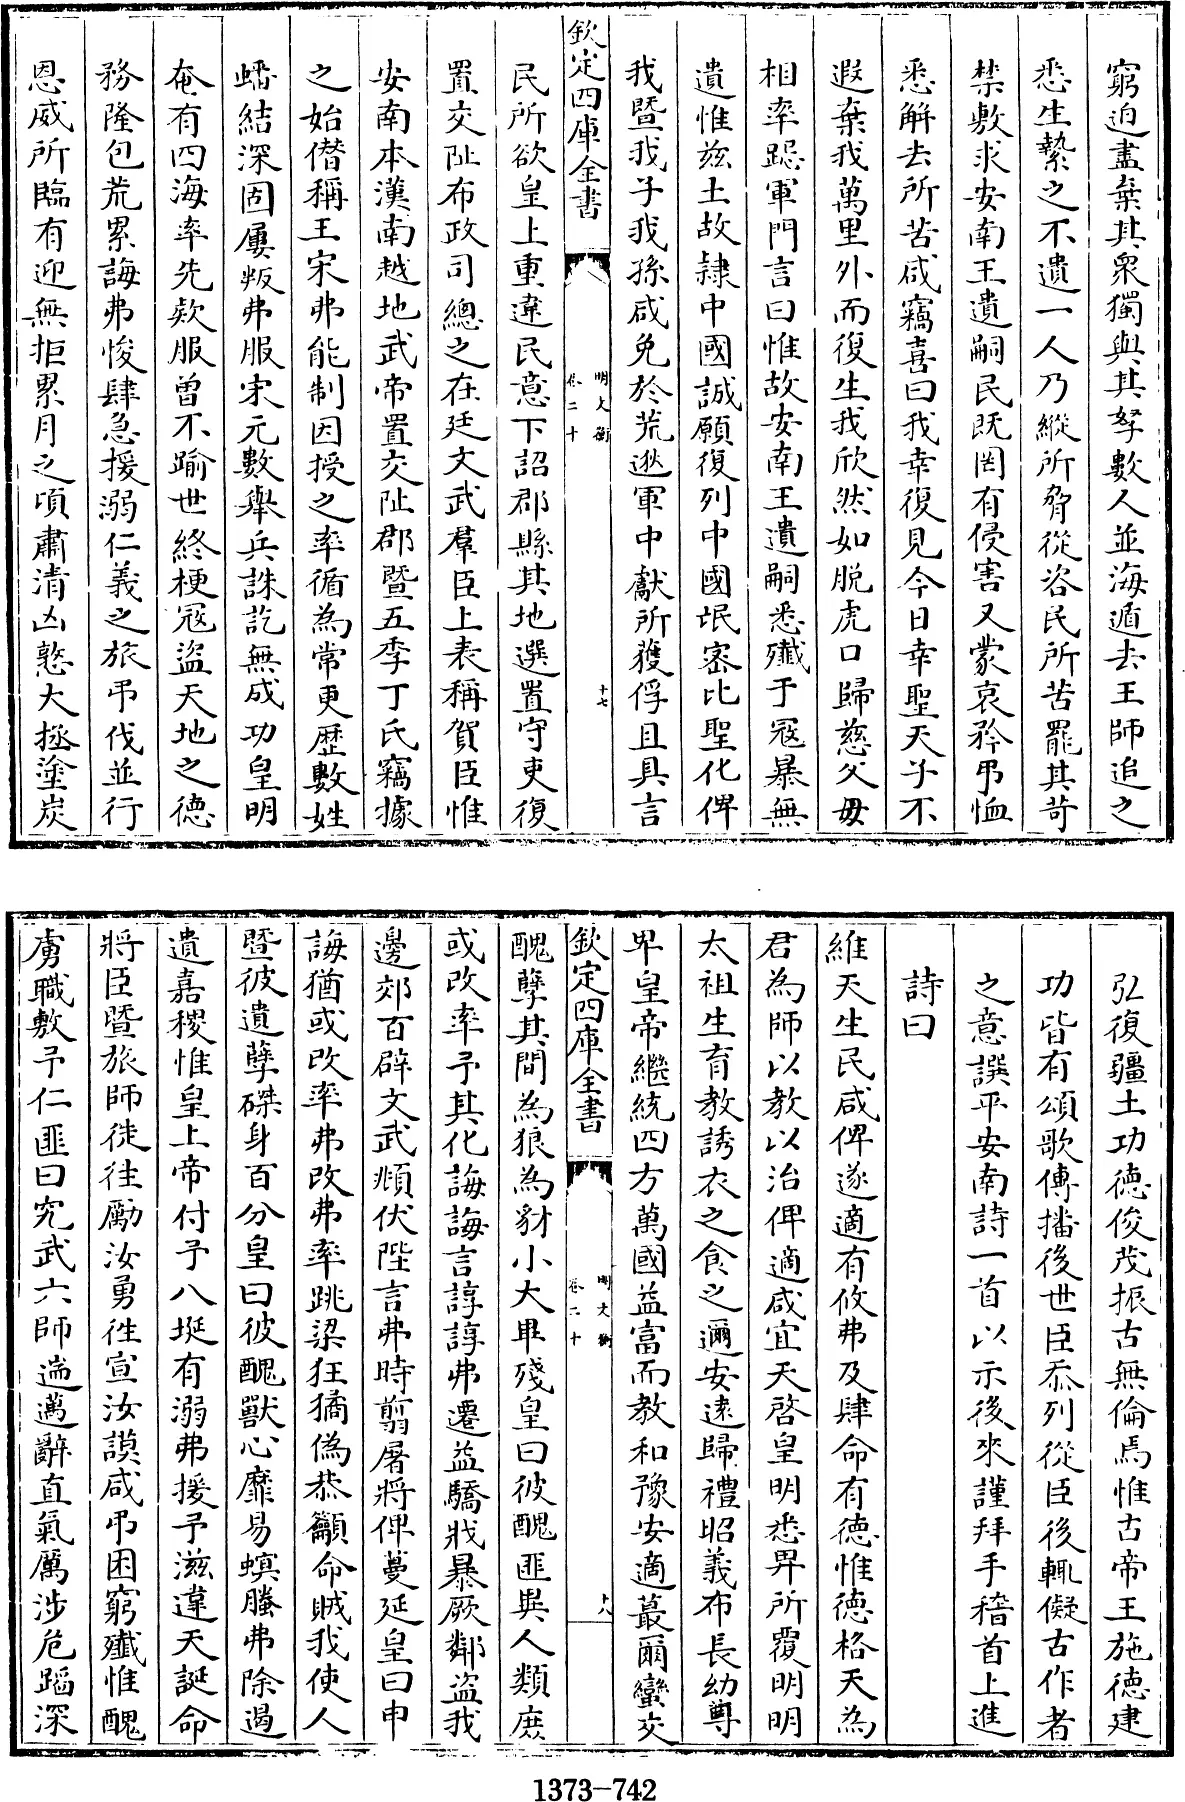 窮迫盡棄其衆獨與其孥數人並海遁去王師追之
悉生縶之不遺一人乃縱所脅從咨民所苦罷其苛
禁敷求安南王遺嗣民既罔有侵害又蒙哀矜弔恤
悉解去所苦咸竊喜曰我幸復見今日幸聖天子不
遐棄我萬里外而復生我欣然如脱虎口歸慈父母
相率跽軍門言曰惟故安南王遺嗣悉殲于冦暴無
遺惟兹土故隸中國誠願復列中國氓密比聖化俾
我暨我子我孫咸免於荒逖軍中獻所獲俘且具言
欽定四庫全書
明文衡
卷二十
十七
民所欲皇上重違民意下詔郡縣其地選置守吏復
置交阯布政司總之在廷文武羣臣上表稱賀臣惟
安南本漢南越地武帝置交阯郡暨五季丁氏竊據
之始僭稱王宋弗能制因授之率循為常更歴數姓
蟠結深固屢叛弗服宋元數舉兵誅訖無成功皇明
奄有四海率先欵服曽不踰世終梗冦盜天地之德
務隆包荒累誨弗悛肆急援溺仁義之旅弔伐並行
恩威所臨有迎無拒累月之頃肅清凶憝大拯塗炭
弘復疆土功德俊茂振古無倫焉惟古帝王施德建
功皆有頌歌傳播後世臣忝列從臣後輒儗古作者
之意譔平安南詩一首以示後來謹拜手稽首上進
詩曰
維天生民咸俾遂適有攸弗及肆命有德惟德格天為
君為師以教以治俾適咸宜天啓皇明悉畀所覆明明
太祖生育教誘衣之食之邇安遠歸禮昭義布長幼尊
卑皇帝繼統四方萬國益富而教和豫安適蕞爾蠻交
欽定四庫全書
明文衡
卷二十
十八
醜孽其間為狼為豺小大畢殘皇曰彼醜匪與人類庶
或改率予其化誨誨言諄諄弗遷益驕戕暴厥鄰盜我
邊郊百辟文武頫伏陛言弗時翦屠將俾蔓延皇曰申
誨猶或改率弗改弗率跳梁狂獝偽恭籲命賊我使人
暨彼遺孽磔身百分皇曰彼醜獸心靡易螟螣弗除遏
遺嘉稷惟皇上帝付予八埏有溺弗援予滋違天誕命
將臣暨旅師徒往勵汝勇徃宣汝謨咸弔困窮殲惟醜
虜職敷予仁匪曰究武六師遄邁辭直氣厲涉危蹈深
1373-742